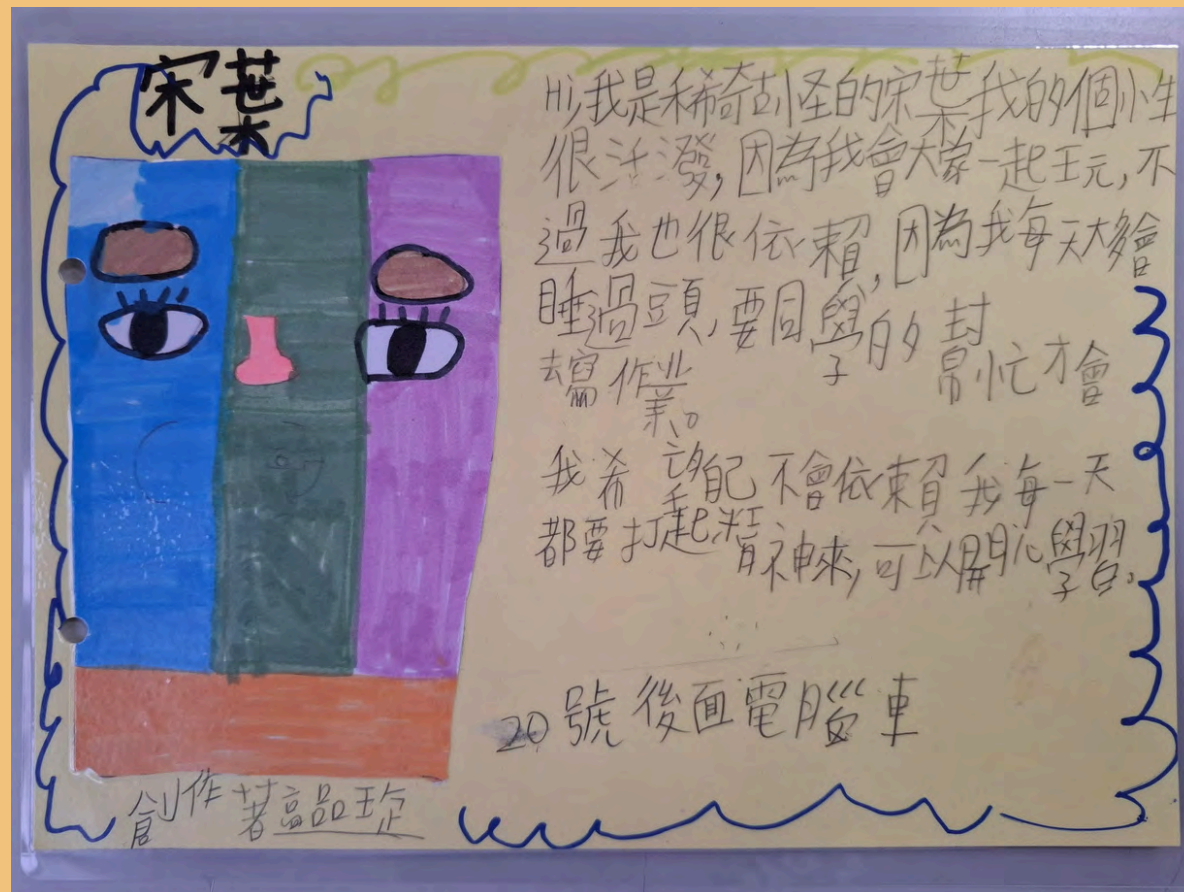 宋葉
Hi,我是稀奇古怪的宋葉我的個性
很活潑,因為我會大家一起玩,不
過我也很依賴,因為我每天大多會
睡過頭,要同學的幫忙才會
去寫作業。
我希望自己不會依賴我每一天
都要打起精神來,可以開心學習。
20號後面電腦車
創作著高品珍